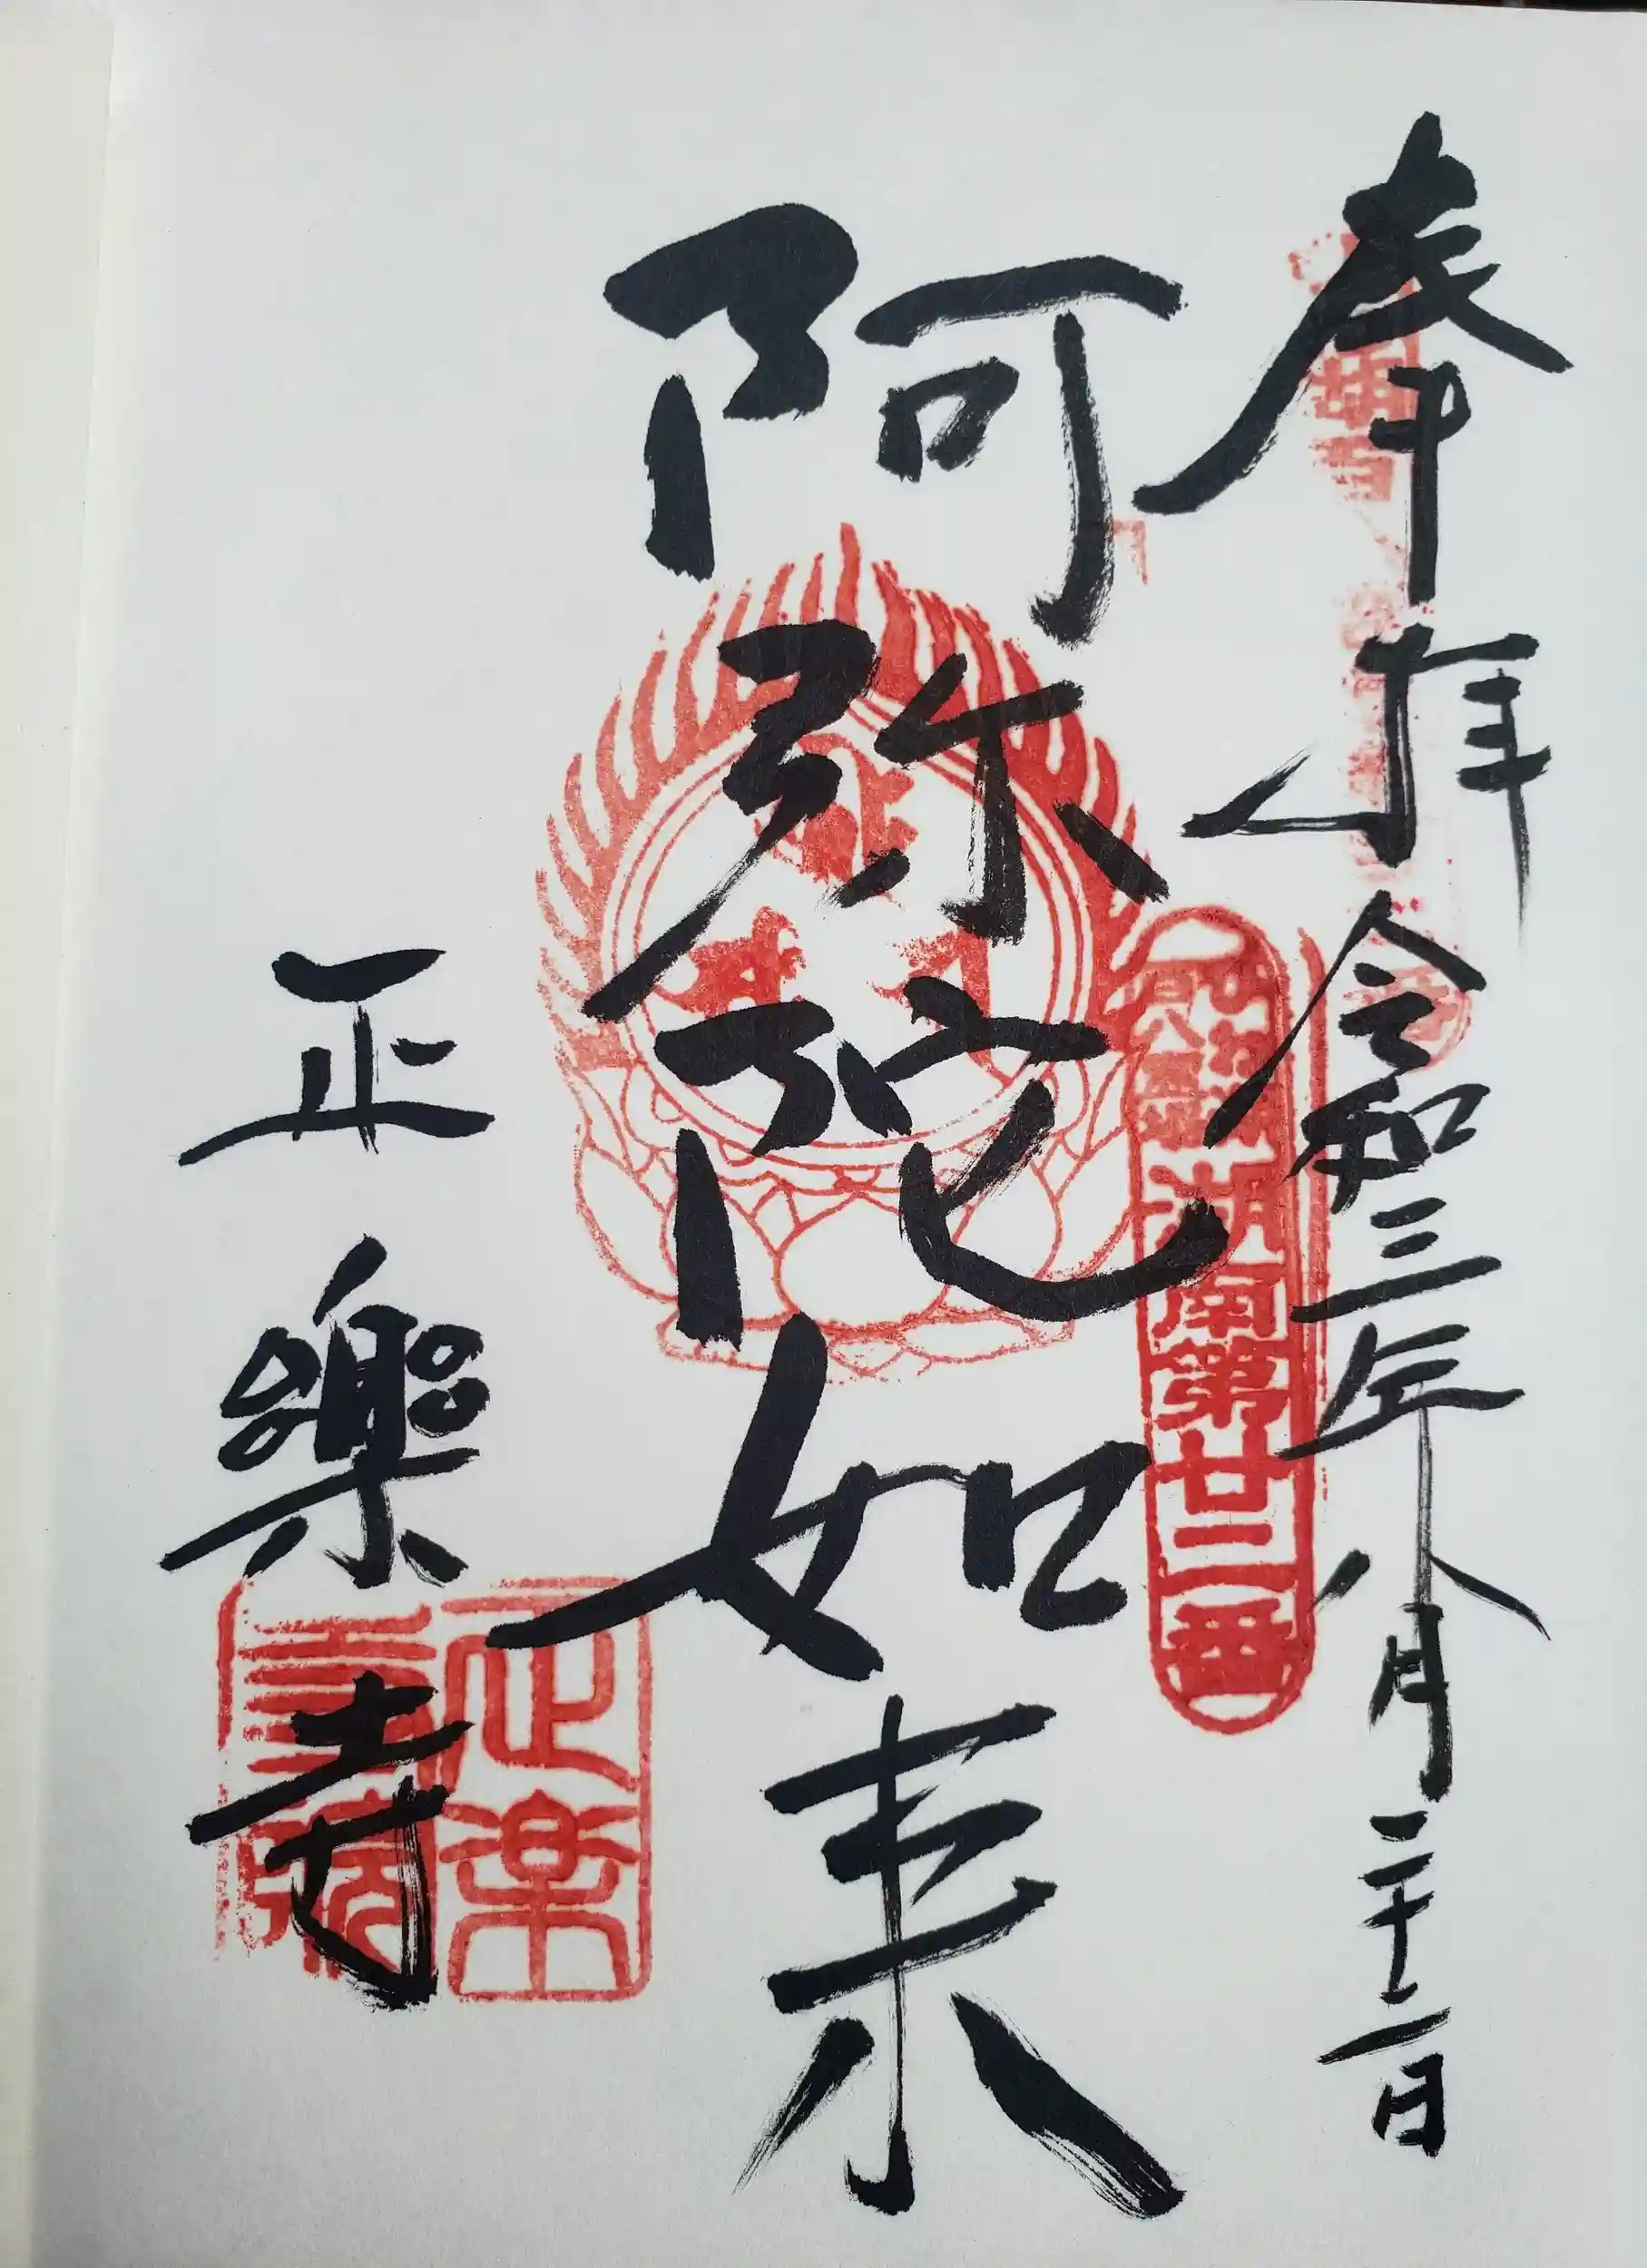 奉拝 令和三年八月二十二日
阿弥陀如来
正樂寺
湖南第廿二番
正楽寺院